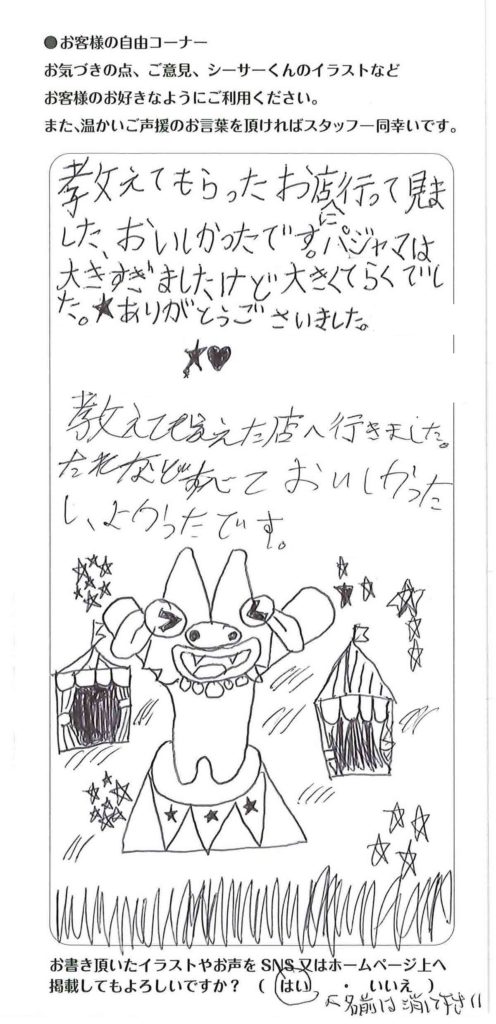 ●お客様の自由コーナー
お気づきの点、ご意見、シーサーくんのイラストなど
お客様のお好きなようにご利用ください。
また、温かいご声援のお言葉を頂ければスタッフ一同幸いです。
教えてもらったお店に行って見ま
した、おいしかったです。パジャマは
大きすぎましたけど大きくてらくでし
た。★ありがとうございました。
★♥
教えて貰えた店へ行きました。
たれなどすべて おいしかった
し、よかったです。
お書き頂いたイラストやお声を SNS 又はホームページ上へ
掲載してもよろしいですか？ ( はい ・ いいえ )
名前は消して下さい